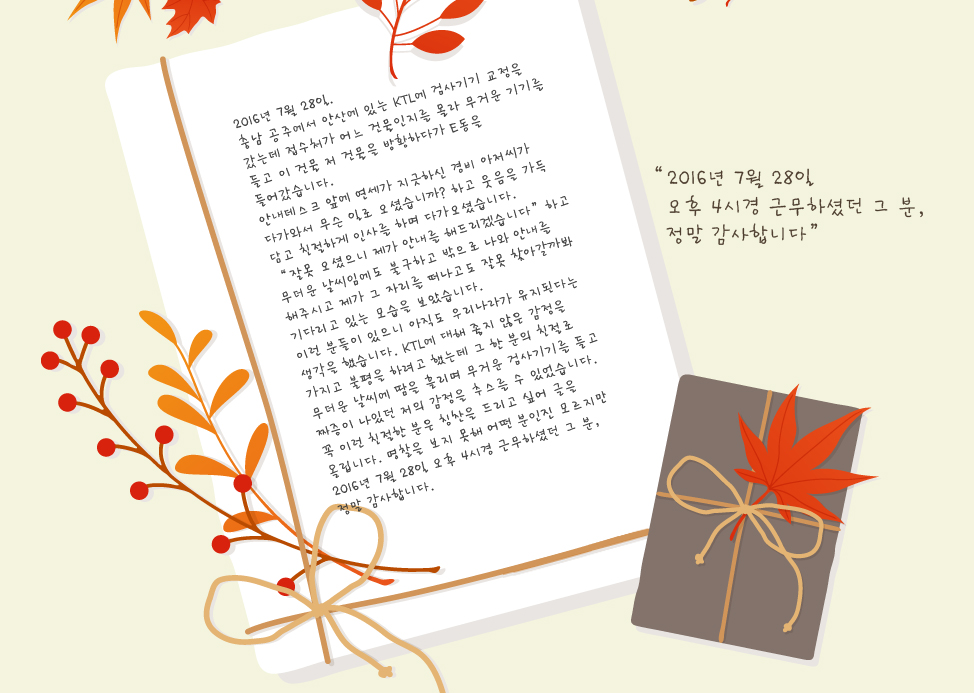 2016년 7월 28일.
충남 공주에서 안산에 있는 KTL에 검사기기 교정을
갔는데 접수처가 어느 건물인지를 몰라 무거운 기기를
들고 이 건물 저 건물을 방황하다가 E동을
들어갔습니다.
안내데스크 앞에 연세가 지긋하신 경비 아저씨가
다가와서 무슨 일로 오셨습니까? 하고 웃음을 가득
담고 친절하게 인사를 하며 다가오셨습니다.
“잘못 오셨으니 제가 안내를 해드리겠습니다” 하고
무더운 날씨임에도 불구하고 밖으로 나와 안내를
해주시고 제가 그 자리를 떠나고도 잘못 찾아갈까봐
기다리고 있는 모습을 보았습니다.
이런 분들이 있으니 아직도 우리나라가 유지된다는
생각을 했습니다. KTL에 대해 좋지 않은 감정을
가지고 불평을 하려고 했는데 그 한 분의 친절로
무더운 날씨에 땀을 흘리며 무거운 검사기기를 들고
짜증이 나있던 저의 감정을 추스를 수 있었습니다.
꼭 이런 친절한 분은 칭찬을 드리고 싶어 글을
올립니다. 명찰을 보지 못해 어떤 분인진 모르지만
2016년 7월 28일 오후 4시경 근무하셨던 그 분,
정말 감사합니다.
“2016년 7월 28일
오후 4시경 근무하셨던 그 분,
정말 감사합니다”